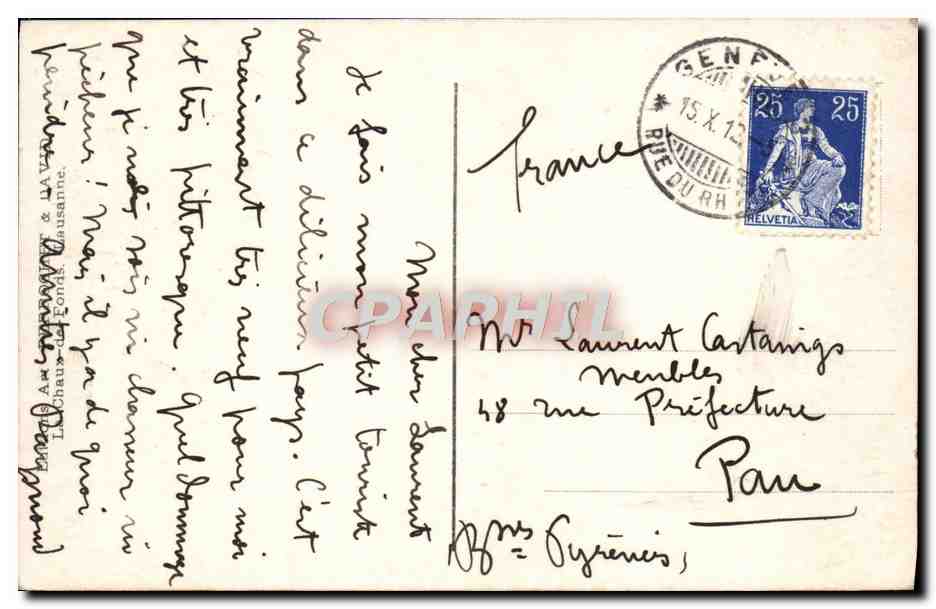 Mon cher Laurent
Je fais mon petit touriste
dans ce délicieux pays. C'est
vraiment très neuf pour moi
et très pittoresque. Quel dommage
que je ne sois ni chasseur ni
pêcheur! Mais il y a de quoi
peindre
La Chaux-de-Fonds. Lausanne.
France
GENÈ
15.X.12
RUE DU RH
25 25
HELVETIA
Mr Laurent Castaings
meubles
48 rue Préfecture
Pau
Bses Pyrénées,
CPARPHIL